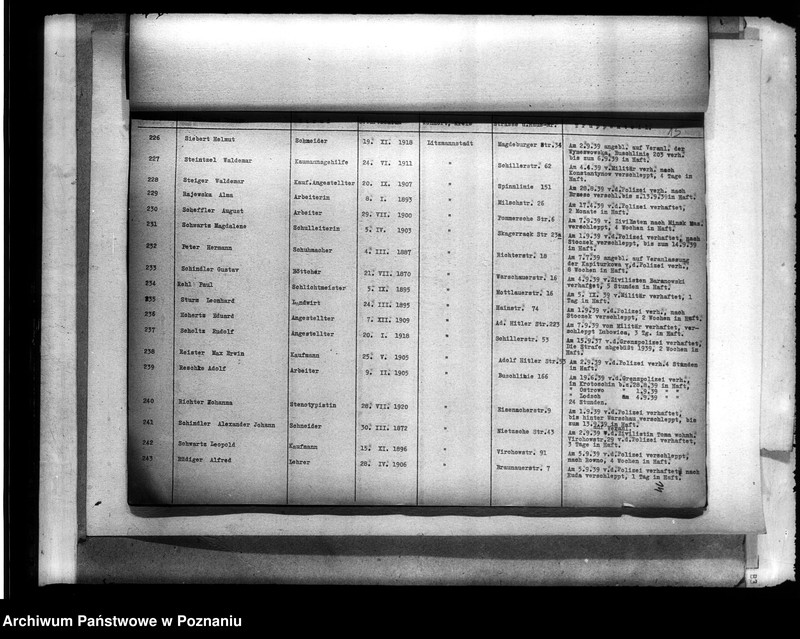 15
226 Siebert Helmut Schneider 19. XI. 1918 Litzmannstadt Magdeburger Str.34 Am 2.9.39 angebl. auf Veranl. den
Wyneswowska, Buschlinie 203 verh.
bis zum 6.9.39 in Haft.
227 Steintzel Waldemar Kaumannsgehilfe 24. VI. 1911 " Schillerstr. 62 Am 4.4.39 v.Militär verh. nach
Konstantynow verschleppt, 4 Tage in
Haft.
228 Steiger Waldemar Kauf.Angestellter 20. IX. 1907 " Spinnlinie 151 Am 28.8.39 v.d.Polizei verh. nach
Brzesc verschl.bis z.13.9.39in Haft.
229 Rajewska Alma Arbeiterin 8. I. 1893 " Milschstr. 26 Am 17.4.39 v.d.Polizei verhaftet,
2 Monate in Haft.
230 Scheffler August Arbeiter 29. VII. 1900 " Pommersche Str.6 Am 7.9.39 v. Zivilisten nach Minsk Maz.
verschleppt, 4 Wochen in Haft.
231 Schwartz Magdalene Schulleiterin 5. IV. 1903 " Skagerrack Str 23a Am 1.9.39 v.d.Polizei verhaftet, nach
Stoczek verschleppt, bis zum 14.9.39
in Haft.
232 Peter Hermann Schuhmacher 4. III. 1887 " Richterstr. 18 Am 7.7.39 angebl. auf Veranlassung
der Kapiturkowa v.d.Polizei verh.,
8 Wochen in Haft.
233 Schindler Gustav Böttcher 21. VII. 1870 " Warschauerstr. 16 Am 4.9.39 v.Zivilisten Baranowski
verhaftet, 5 Stunden in Haft.
234 Kehl Paul Schlichtmeister 5. IX. 1895 " Mottlauerstr. 16 Am 5. IX. 39 v.Militär verhaftet, 1
Tag in Haft.
235 Sturm Leonhard Landwirt 24. III. 1895 " Hainstr. 74 Am 1.9.39 v.d.Polizei verhaftet, nach
Stoczek verschleppt, 2 Wochen in Haft.
236 Schertz Eduard Angestellter 7. XII. 1909 " Ad. Hitler Str.223 Am 7.9.39 von Militär verhaftet, ver-
schleppt Lubowisa, 3 Tg. in Haft.
237 Scholtz Rudolf Angestellter 20. I. 1918 " Schillerstr. 53 Am 15.9.37 v.d.Grenzpolizei verhaftet,
Die Strafe abgebüßt 1939, 2 Wochen in
Haft.
238 Reister Max Erwin Kaufmann 25. V. 1905 " Adolf Hitler Str.33 Am 2.9.39 v.d.Polizei verh.4 Stunden
in Haft.
239 Reschke Adolf Arbeiter 9. II. 1905 " Buschlinie 166 Am 19.6.39 v.d.Grenzpolizei verh.,
in Krotoschin b.z.28.8.39 in Haft,
" Ostrowo " 1.9.39 " "
" Lodsch am 4.9.39 " "
24 Stunden.
240 Richter Johanna Stenotypistin 28. VII. 1920 " Eisenacherstr.9 Am 1.9.39 v.d.Polizei verhaftet,
bis hinter Warschau verschleppt, bis
zum 13.9.39 in Haft.
241 Schindler Alexander Johann Schneider 30. III. 1872 " Nietzsche Str.43 Am 2.9.39 v.d.Zivilistin Toma wohnh.
Virchowstr.29 v.d.Polizei verhaftet,
3 Tage in Haft.
242 Schwartz Leopold Kaufmann 15. XI. 1896 " Virchowstr. 91 Am 5.9.39 v.d.Polizei verschleppt,
nach Rowno, 4 Wochen in Haft.
243 Rüdiger Alfred Lehrer 28. IV. 1906 " Braunauerstr. 7 Am 5.9.39 v.d.Polizei verhaftet nach
Ruda verschleppt, 1 Tag in Haft.
Archiwum Państwowe w Poznaniu